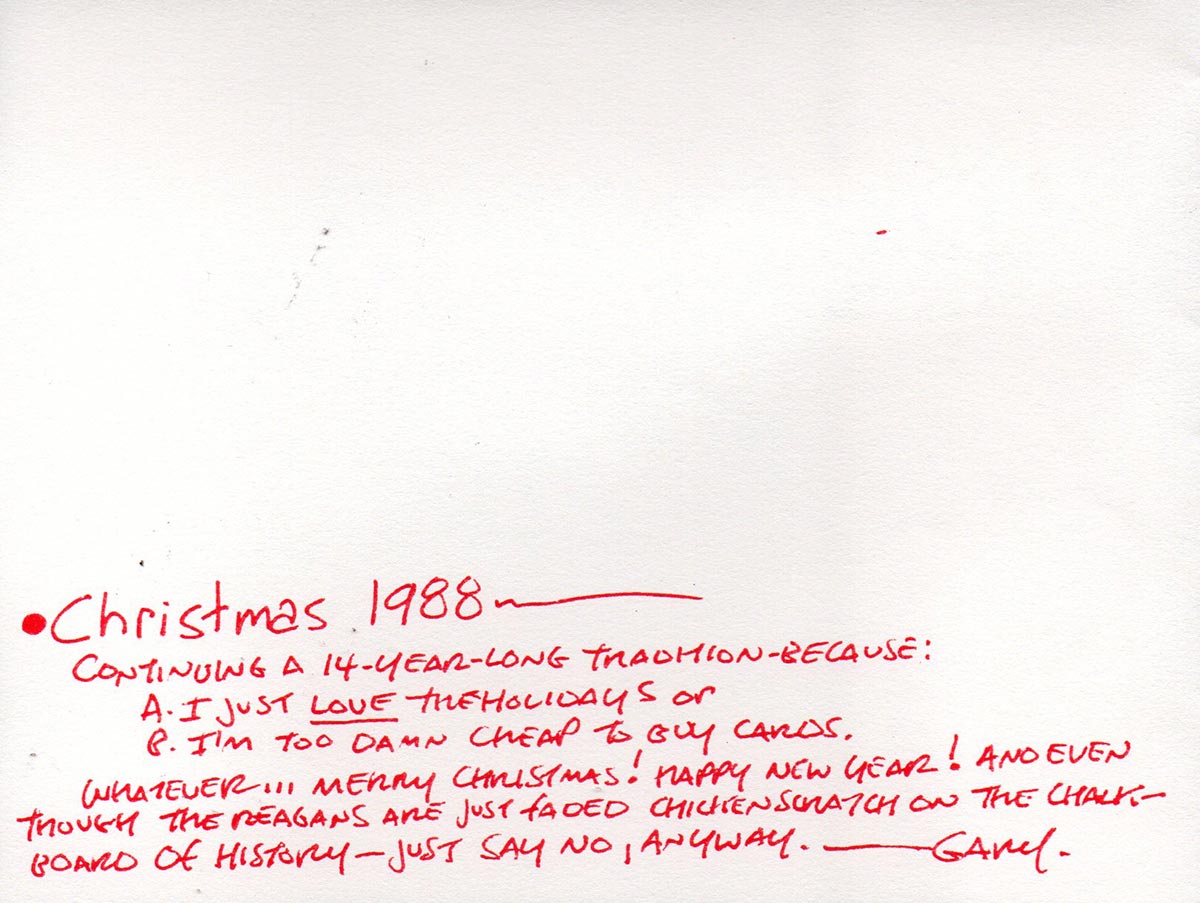 • Christmas 1988
CONTINUING A 14-YEAR-LONG TRADITION-BECAUSE:
A. I JUST LOVE THE HOLIDAYS or
B. I'M TOO DAMN CHEAP to BUY CARDS.
WHATEVER... MERRY CHRISTMAS! HAPPY NEW YEAR! AND EVEN
THOUGH THE REAGANS ARE JUST FADED CHICKENSCRATCH ON THE CHALK-
BOARD OF HISTORY — JUST SAY NO, ANYWAY. — GARY.